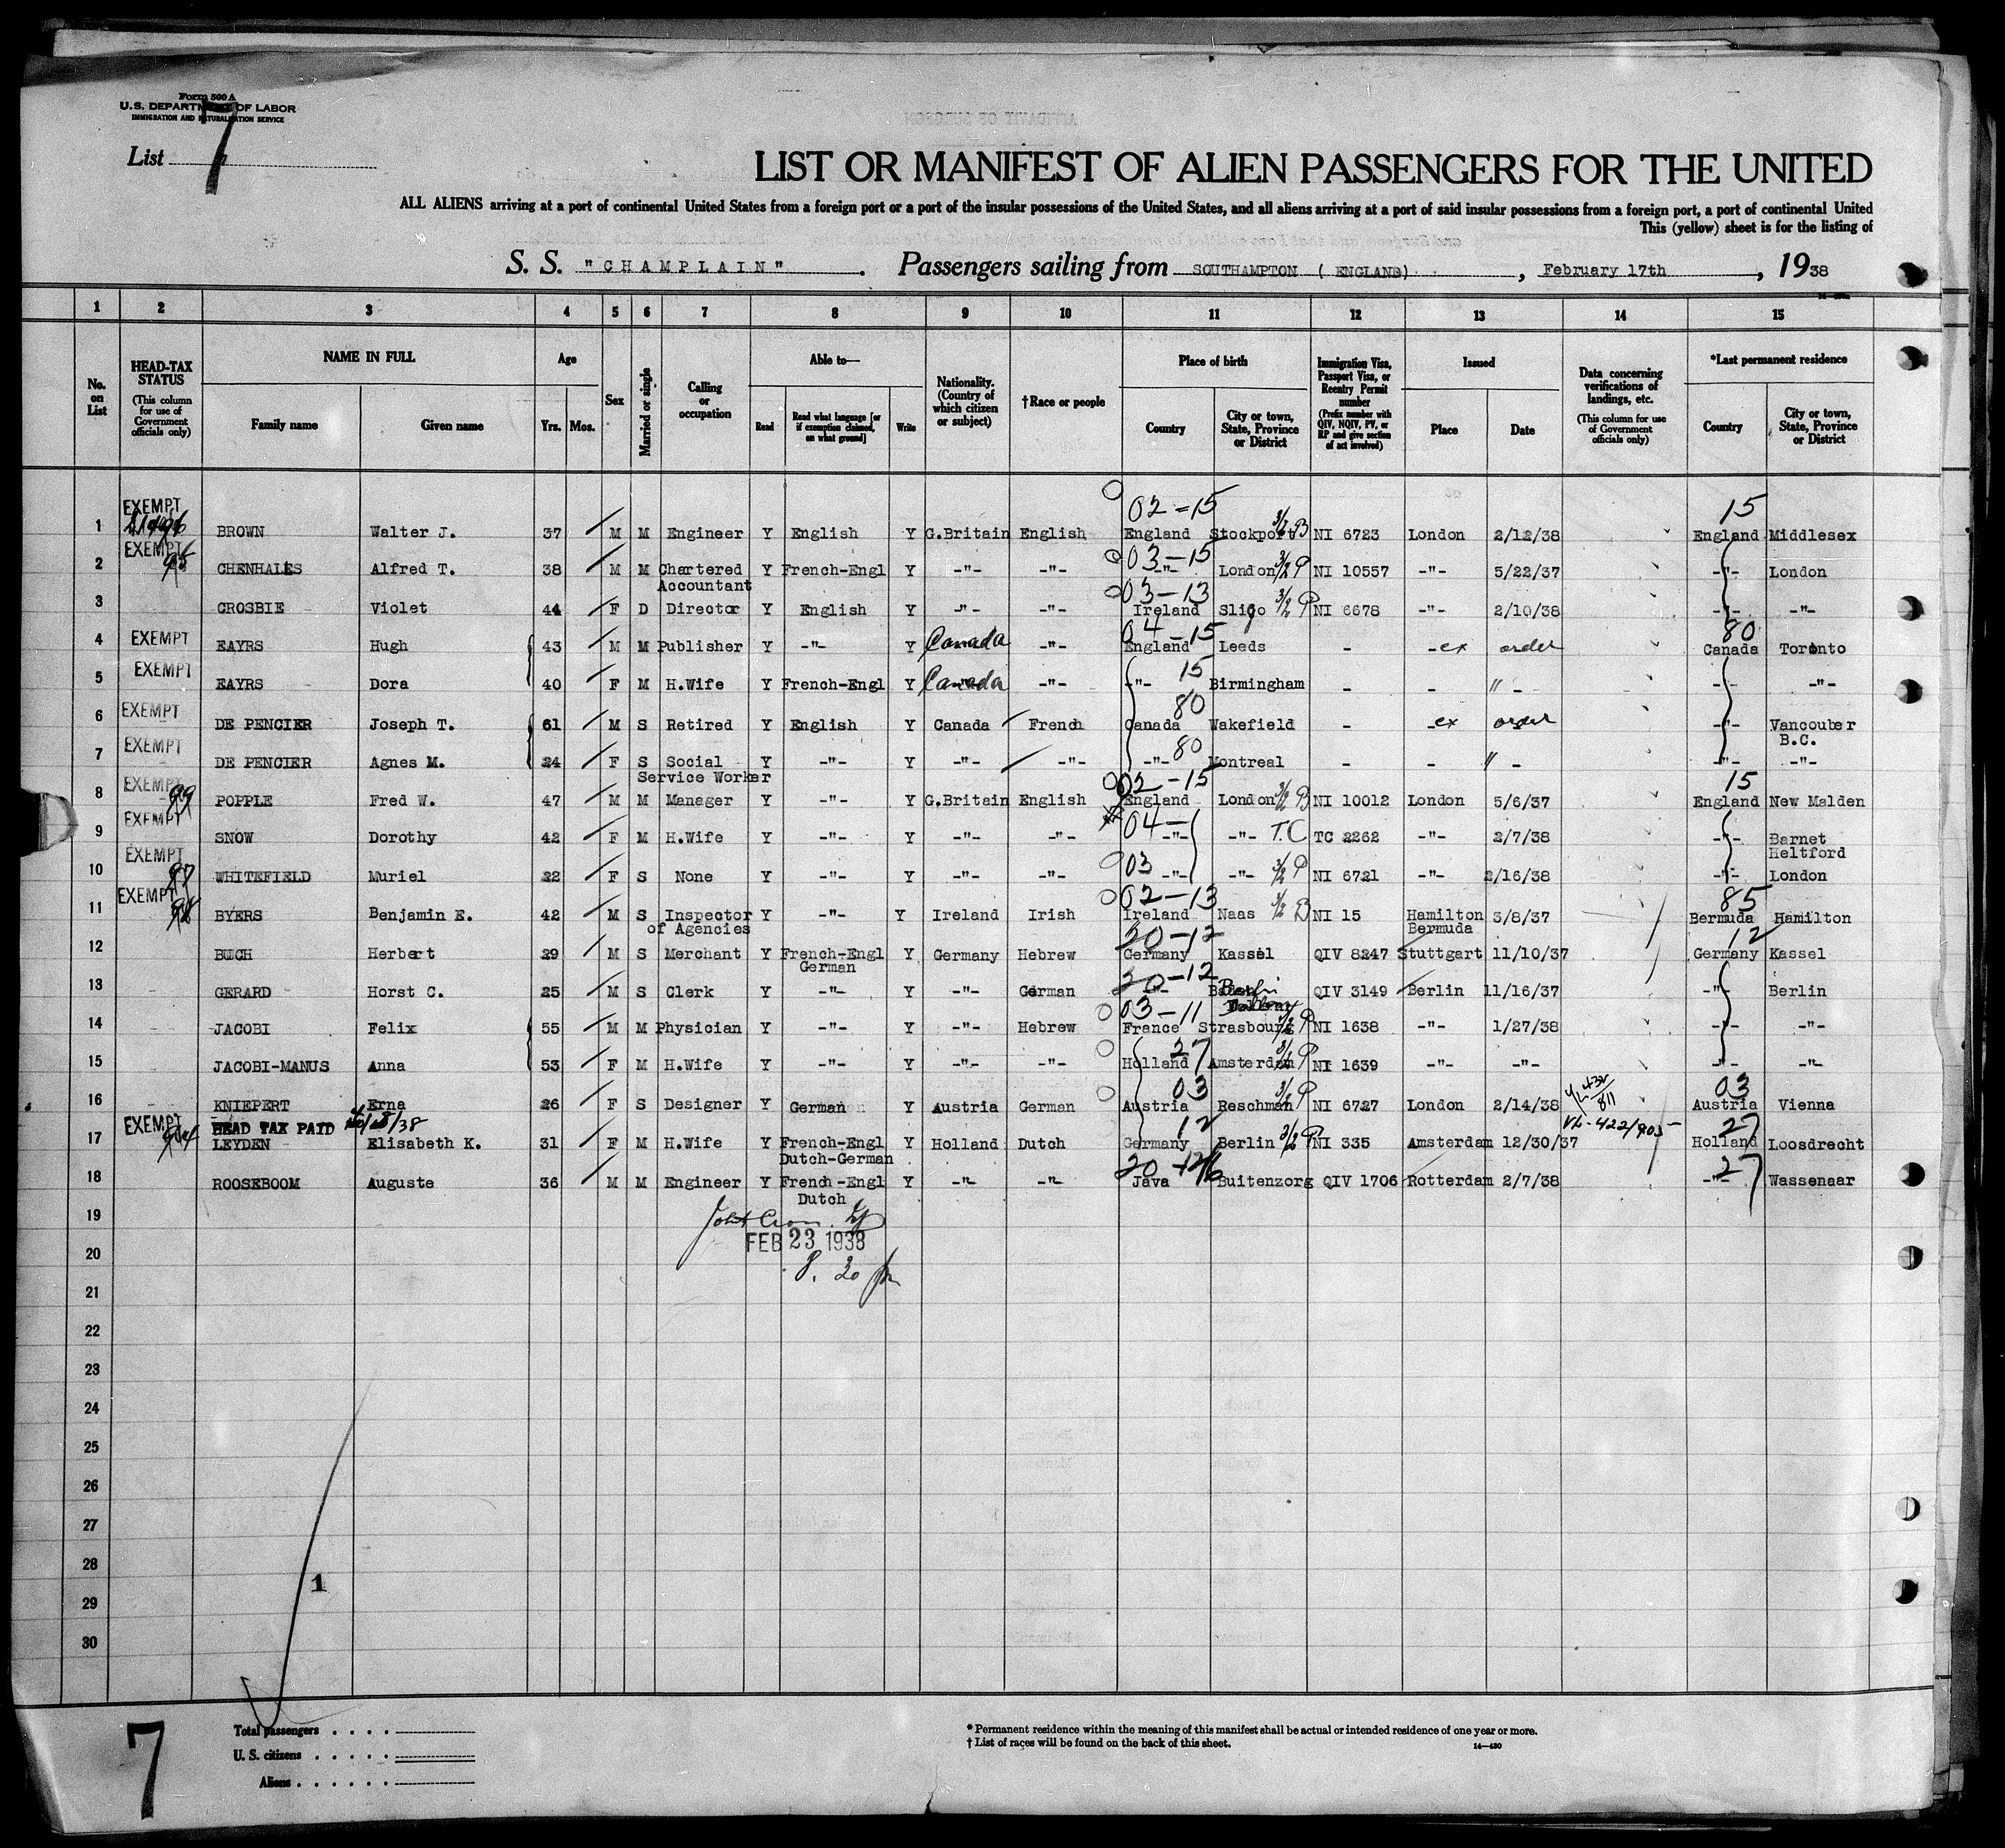 Form 500 A
U.S. DEPARTMENT OF LABOR
IMMIGRATION AND NATURALIZATION SERVICE
List 7
LIST OR MANIFEST OF ALIEN PASSENGERS FOR THE UNITED
ALL ALIENS arriving at a port of continental United States from a foreign port or a port of the insular possessions of the United States, and all aliens arriving at a port of said insular possessions from a foreign port, a port of continental United
This (yellow) sheet is for the listing of
S. S. "CHAMPLAIN" . Passengers sailing from SOUTHAMPTON ( ENGLAND) , February 17th , 1938
1 2 3 4 5 6 7 8 9 10 11 12 13 14 15
No. on List
HEAD-TAX STATUS (This column for use of Government officials only)
NAME IN FULL Family name Given name
Age Yrs. Mos.
Sex
Married or single
Calling or occupation
Able to— Read Read what language [or if exemption claimed, on what ground] Write
Nationality. (Country of which citizen or subject)
†Race or people
Place of birth Country City or town, State, Province or District
Immigration Visa, Passport Visa, or Reentry Permit number (Prefix number with QIV, NQIV, PV, or RP and give section of act involved)
Issued Place Date
Data concerning verifications of landings, etc. (This column for use of Government officials only)
*Last permanent residence Country City or town, State, Province or District
EXEMPT 02-15 15
1 BROWN Walter J. 37 M M Engineer Y English Y G.Britain English England Stockport 3/2 B NI 6723 London 2/12/38 England Middlesex
EXEMPT 95 03-15
2 CHENHALES Alfred T. 38 M M Chartered Accountant Y French-Engl Y -"- -"- -"- London 3/2 P NI 10557 -"- 5/22/37 -"- London
03-13
3 CROSBIE Violet 44 F D Director Y English Y -"- -"- Ireland Sligo 3/2 P NI 6678 -"- 2/10/38 -"- -"-
EXEMPT 04-15 80
4 EAYRS Hugh 43 M M Publisher Y -"- Y Canada -"- England Leeds - -ex order Canada Toronto
EXEMPT 15
5 EAYRS Dora 40 F M H.Wife Y French-Engl Y Canada -"- -"- Birmingham - - " - -"- -"-
EXEMPT 80
6 DE PENCIER Joseph T. 61 M S Retired Y English Y Canada French Canada Wakefield - -ex order -"- Vancouber B.C.
EXEMPT 80
7 DE PENCIER Agnes M. 24 F S Social Service Worker Y -"- Y -"- -"- -"- Montreal - - " - -"- -"-
EXEMPT 99 02-15 15
8 POPPLE Fred W. 47 M M Manager Y -"- Y G.Britain English England London 3/2 B NI 10012 London 5/6/37 England New Malden
EXEMPT 04-
9 SNOW Dorothy 42 F M H.Wife Y -"- Y -"- -"- -"- -"- T.C TC 2262 -"- 2/7/38 -"- Barnet Heltford
EXEMPT 97 03
10 WHITEFIELD Muriel 22 F S None Y -"- Y -"- -"- -"- -"- 3/2 P NI 6721 -"- 2/16/38 -"- London
EXEMPT 98 02-13 85
11 BYERS Benjamin E. 42 M S Inspector of Agencies Y -"- Y Ireland Irish Ireland Naas 3/2 B NI 15 Hamilton Bermuda 3/8/37 Bermuda Hamilton
20-12 12
12 BUCH Herbert 29 M S Merchant Y French-Engl German Y Germany Hebrew Germany Kassel QIV 8247 Stuttgart 11/10/37 Germany Kassel
20-12
13 GERARD Horst C. 25 M S Clerk Y -"- Y -"- German -"- Berlin QIV 3149 Berlin 11/16/37 -"- Berlin
03-11
14 JACOBI Felix 55 M M Physician Y -"- Y -"- Hebrew France Strasbourg 3/2 P NI 1638 -"- 1/27/38 -"- -"-
27
15 JACOBI-MANUS Anna 53 F M H.Wife Y -"- Y -"- -"- Holland Amsterdam 3/2 P NI 1639 -"- -"- -"- -"-
03 03
16 KNIEPERT Erna 26 F S Designer Y German Y Austria German Austria Reschman 3/2 P NI 6727 London 2/14/38 Austria Vienna
EXEMPT HEAD TAX PAID 12 VL-422/903- 27
17 LEYDEN Elisabeth K. 31 F M H.Wife Y French-Engl Dutch-German Y Holland Dutch Germany Berlin 3/2 P NI 335 Amsterdam 12/30/37 Holland Loosdrecht
20 27
18 ROOSEBOOM Auguste 36 M M Engineer Y French-Engl Dutch Y -"- -"- Java Buitenzorg QIV 1706 Rotterdam 2/7/38 -"- Wassenaar
19
FEB 23 1938
20
8.30 pm
21
22
23
24
25
26
27
28
1
29
30
7
Total passengers
U. S. citizens
Aliens
* Permanent residence within the meaning of this manifest shall be actual or intended residence of one year or more.
† List of races will be found on the back of this sheet.
14—430